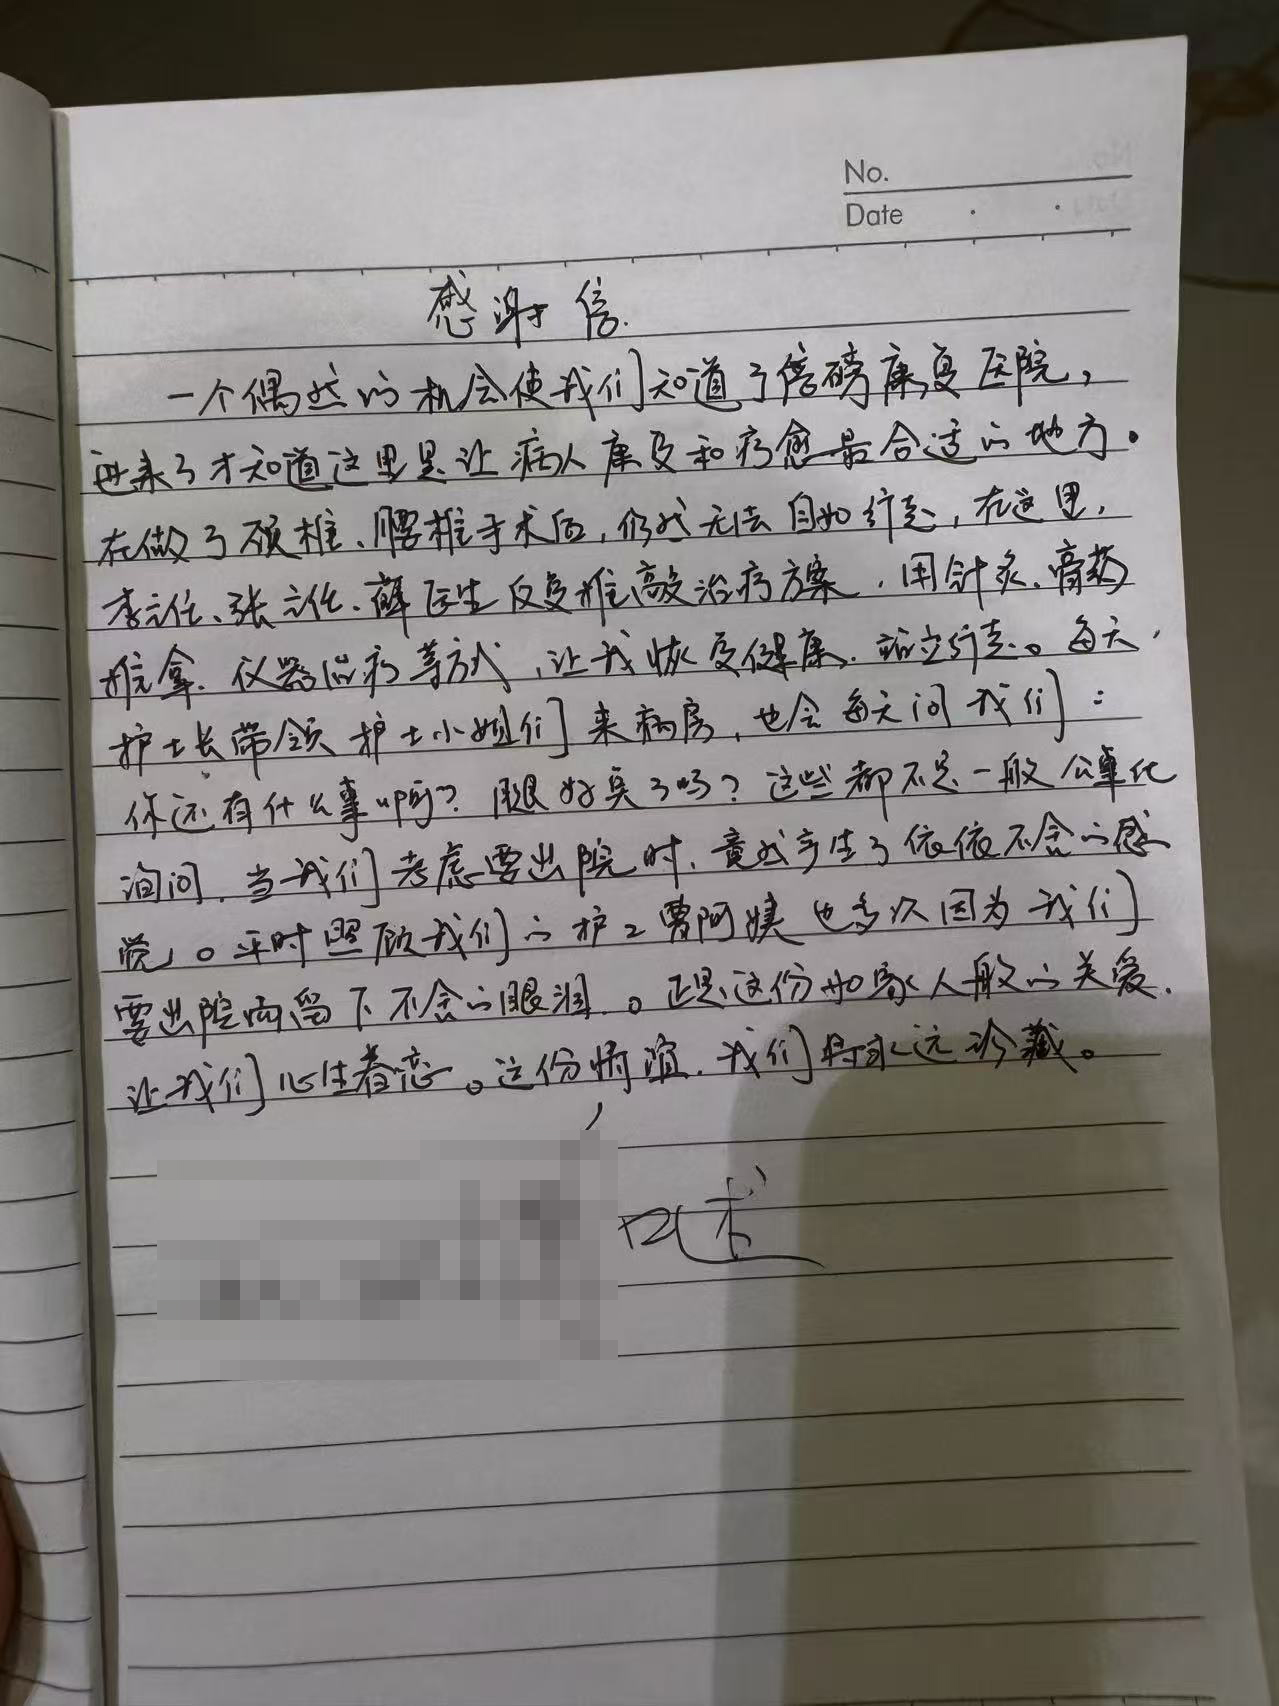 No.
Date
感谢信.
一个偶然的机会使我们知道了倍磅康复医院，
进来了才知道这里是让病人康复和疗愈最合适的地方。
在做了颈椎、腰椎手术后，仍然无法自如行走，在这里，
李主任、张主任、薛医生反复推敲治疗方案，用针灸、膏药
推拿、仪器治疗等方式，让我恢复健康、站立行走。每天，
护士长带领护士小姐们来病房，也会每天问我们：
你还有什么事啊？腿好臭了吗？这些都不是一般公事化
询问，当我们考虑要出院时，竟然产生了依依不舍的感
觉。平时照顾我们的护工曹阿姨也多次因为我们
要出院而留下不舍的眼泪。正是这份如家人般的关爱，
让我们心生眷恋。这份情谊，我们将永远珍藏。